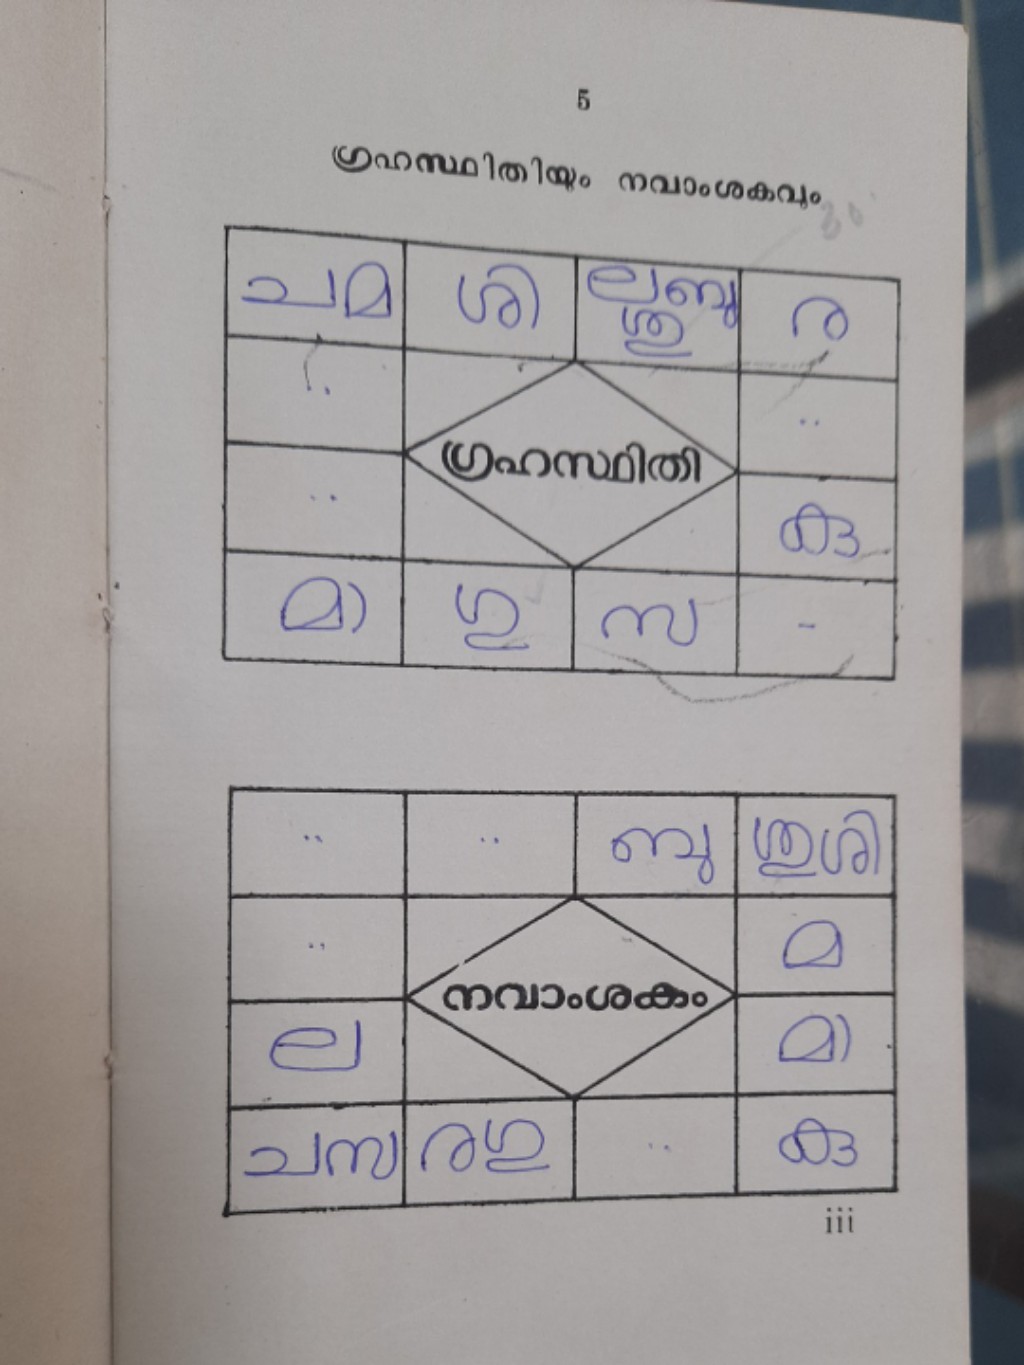 5
ഗ്രഹസ്ഥിതിയും നവാംശകവും
ചമ ശി ലബു ര
ശു
ഗ്രഹസ്ഥിതി
കു
മാ ഗു സ -
ബു ശുശി
മ
നവാംശകം
ല മാ
ചസ രഗു കു
iii